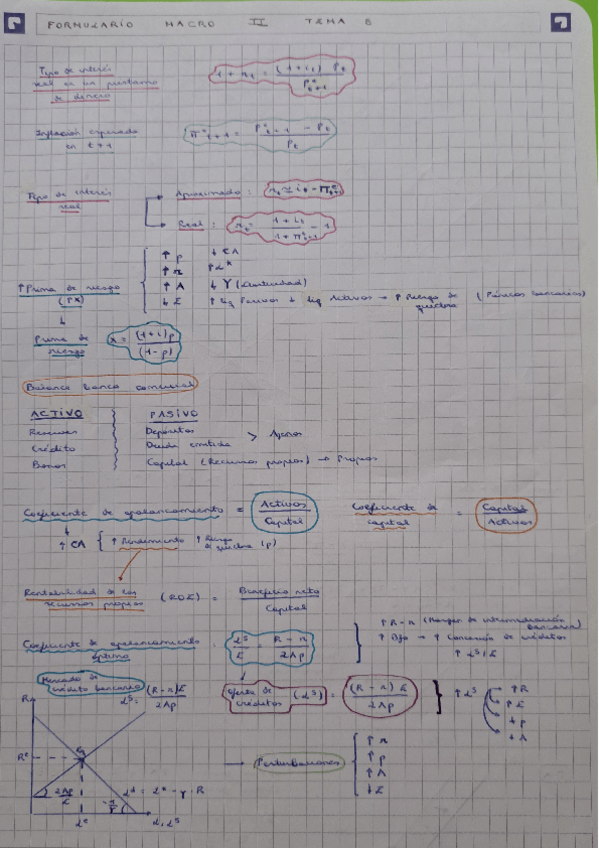 FORMULARIO MACRO II TEMA 8
Tipo de interés
real en un préstamo
de dinero
1 + r_t = (1 + i_t) P_t / P^e_t+1
Inflación esperada
en t+1
π^e_t+1 = P^e_t+1 - P_t / P_t
Tipo de interés
real
Aproximado: r_t ≃ i_t - π^e_t+1
Real: r_t = 1 + i_t / 1 + π^e_t+1 - 1
↑ Prima de riesgo
(↑x)
↑ p ↓ CA
↑ A ↓ Y (
↓ E ↑ liq Pasivos ↓ liq Activos → ↑ Riesgo de quiebra (Pánicos bancarios)
Prima de
riesgo
x = (1+i)p / (1-p)
Balance banca comercial
ACTIVO PASIVO
Reservas Depósitos
Crédito Deuda emitida > Ajenos
Bonos Capital (Recursos propios) → Propios
Coeficiente de apalancamiento = Activos / Capital
Coeficiente de
capital = Capital / Activos
↑ CA { ↑ Rendimiento ↑ Riesgo de quiebra (p)
Rentabilidad de los
recursos propios (ROE) = Beneficio neto / Capital
Coeficiente de apalancamiento
óptimo = L^s / E = R - r / 2Ap
↑ R - r (Margen de intermediación bancaria)
↑ Bfo → ↑ Concesión de créditos
↑ L^s / E
Mercado de
crédito bancario
L^s = (R - r)E / 2Ap
Oferta de
créditos (L^s) = (R - r) E / 2Ap
↑ L^s
↑ R
↑ E
↓ p
↓ A
Perturbaciones
↑ r
↑ p
↑ A
↓ E
R
R^e
2Ap / E
L^e
L, L^s